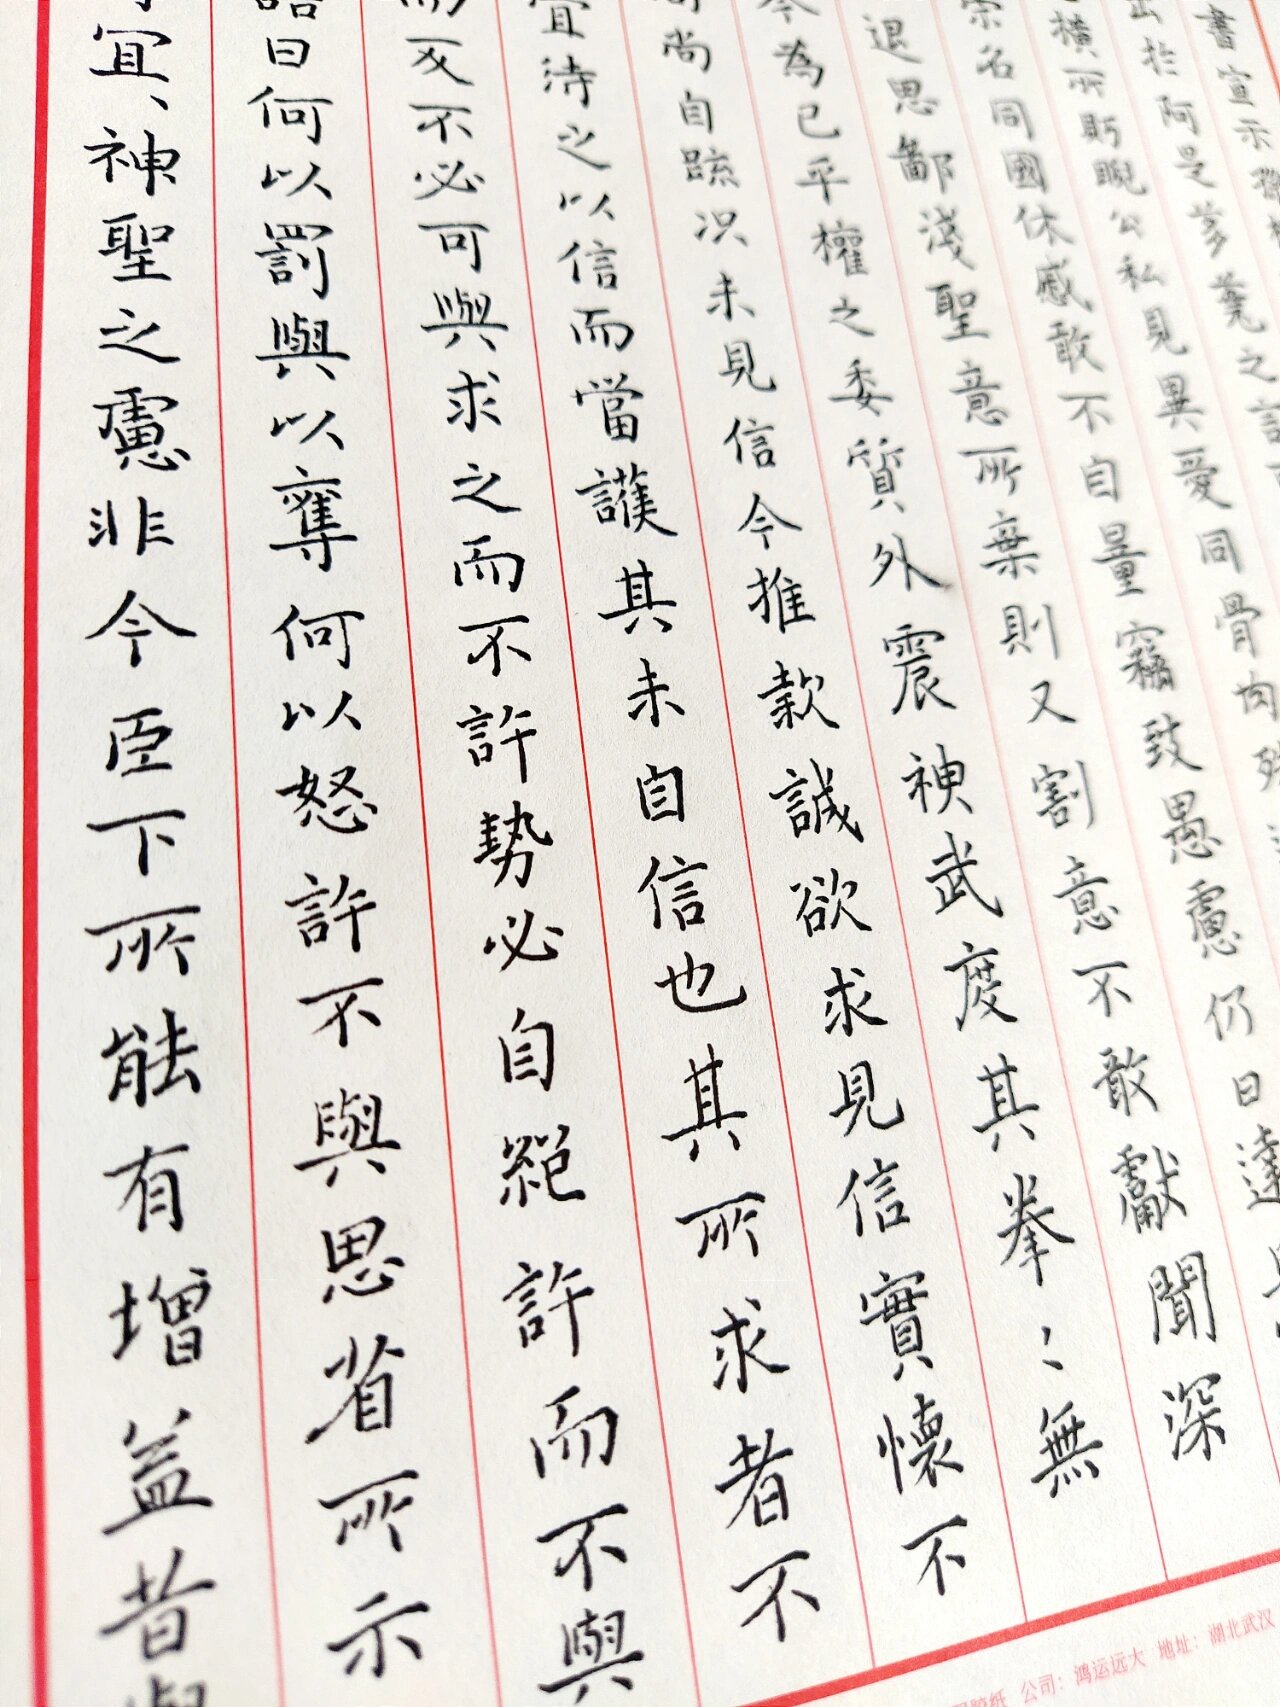 書宣示孫權
出於阿是芻蕘之言可
橫所盱睨公私見異愛同骨肉殊
榮名同國休戚敢不自量竊致愚慮仍日達
退思鄙淺聖意所棄則又割意不敢獻聞深
今為已平權之委質外震神武度其拳〻無
尚自疏況未見信今推款誠欲求見信實懷不
宜待之以信而當護其未自信也其所求者不
而反不必可與求之而不許勢必自絕許而不與
語曰何以罰與以奪何以怒許不與思省所示
宜、神聖之慮非今臣下所能有增益昔與
公司：鸿运远大 地址：湖北武汉